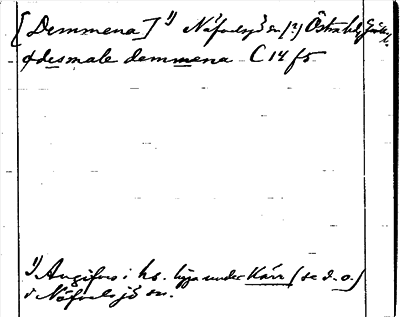 [Demmena] 1) Näfvelsjö sn (?) Östra hd
desmale demmena C 14 f5
1) Angifves i hs. ligga under Kärr (se d. o.)
i Näfvelsjö sn.